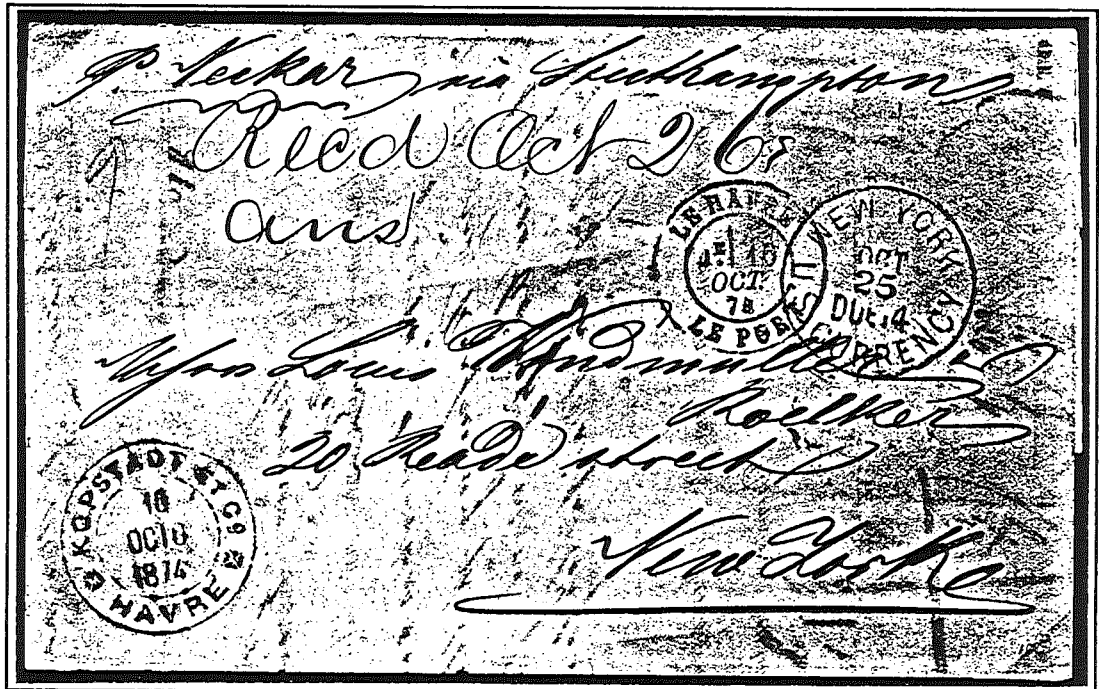 P. Neckar via Southampton
Recd Oct 26
ans
LE HAVRE
16
OCT.
74
LE PORT
NEW YORK
OCT
25
DUE 4
U.S. CURRENCY
Louis Windmüller &
Roelker
20 Reade street
New York
KOPSTADT ET Cº
16
OCTO
1874
HAVRE